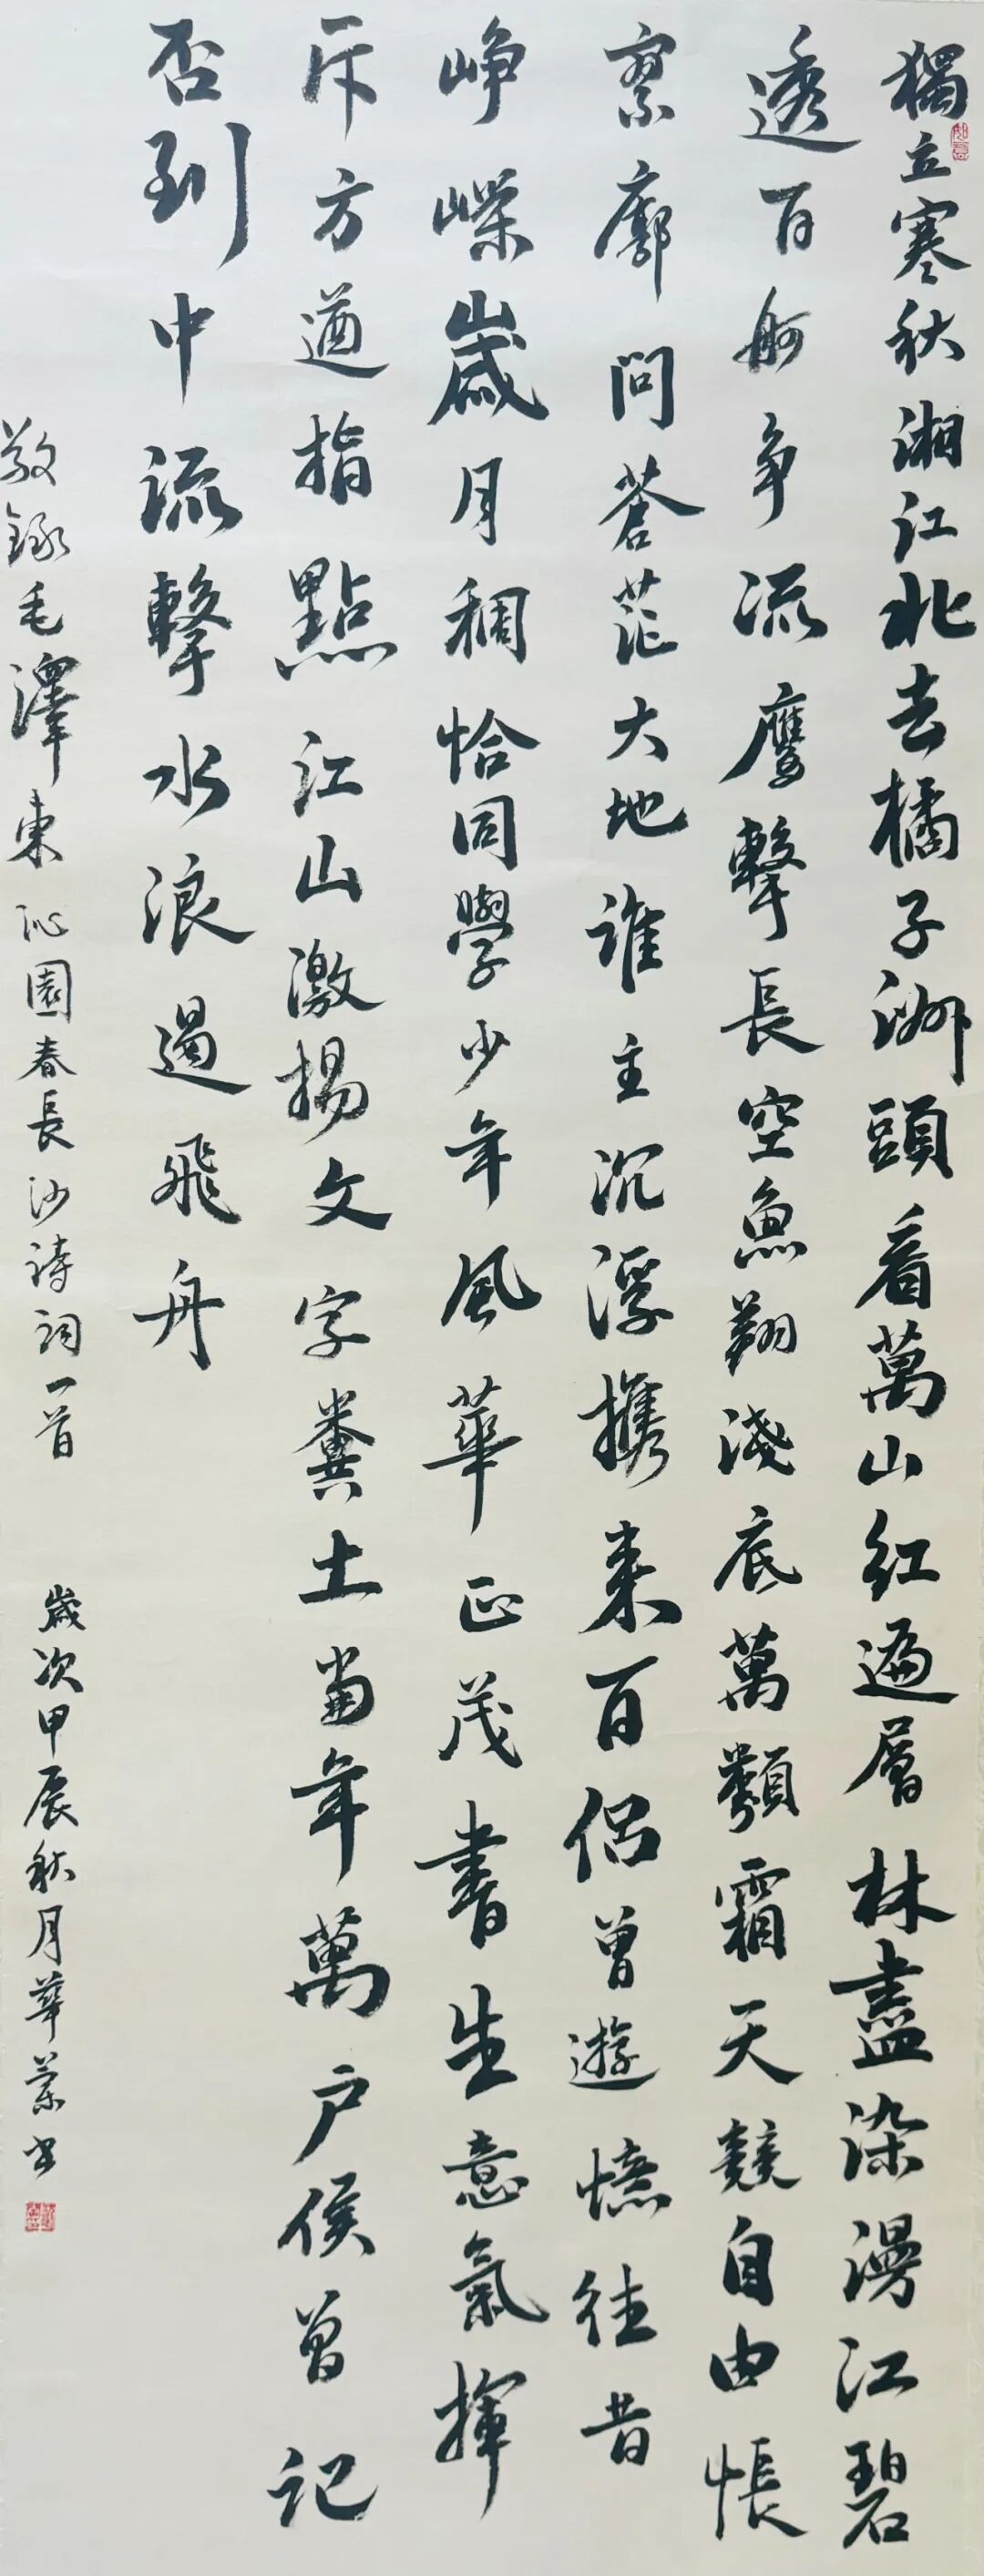 獨立寒秋湘江北去橘子洲頭看萬山紅遍層林盡染漫江碧
透百舸争流鷹擊長空魚翔淺底萬類霜天競自由悵
寥廓問蒼茫大地誰主沉浮携来百侣曾遊憶往昔
峥嶸歲月稠恰同學少年風華正茂書生意氣揮
斥方遒指點江山激揚文字糞土當年萬户侯曾記
否到中流擊水浪遏飛舟
敬録毛澤東沁園春長沙詩詞一首 歲次甲辰秋月華书